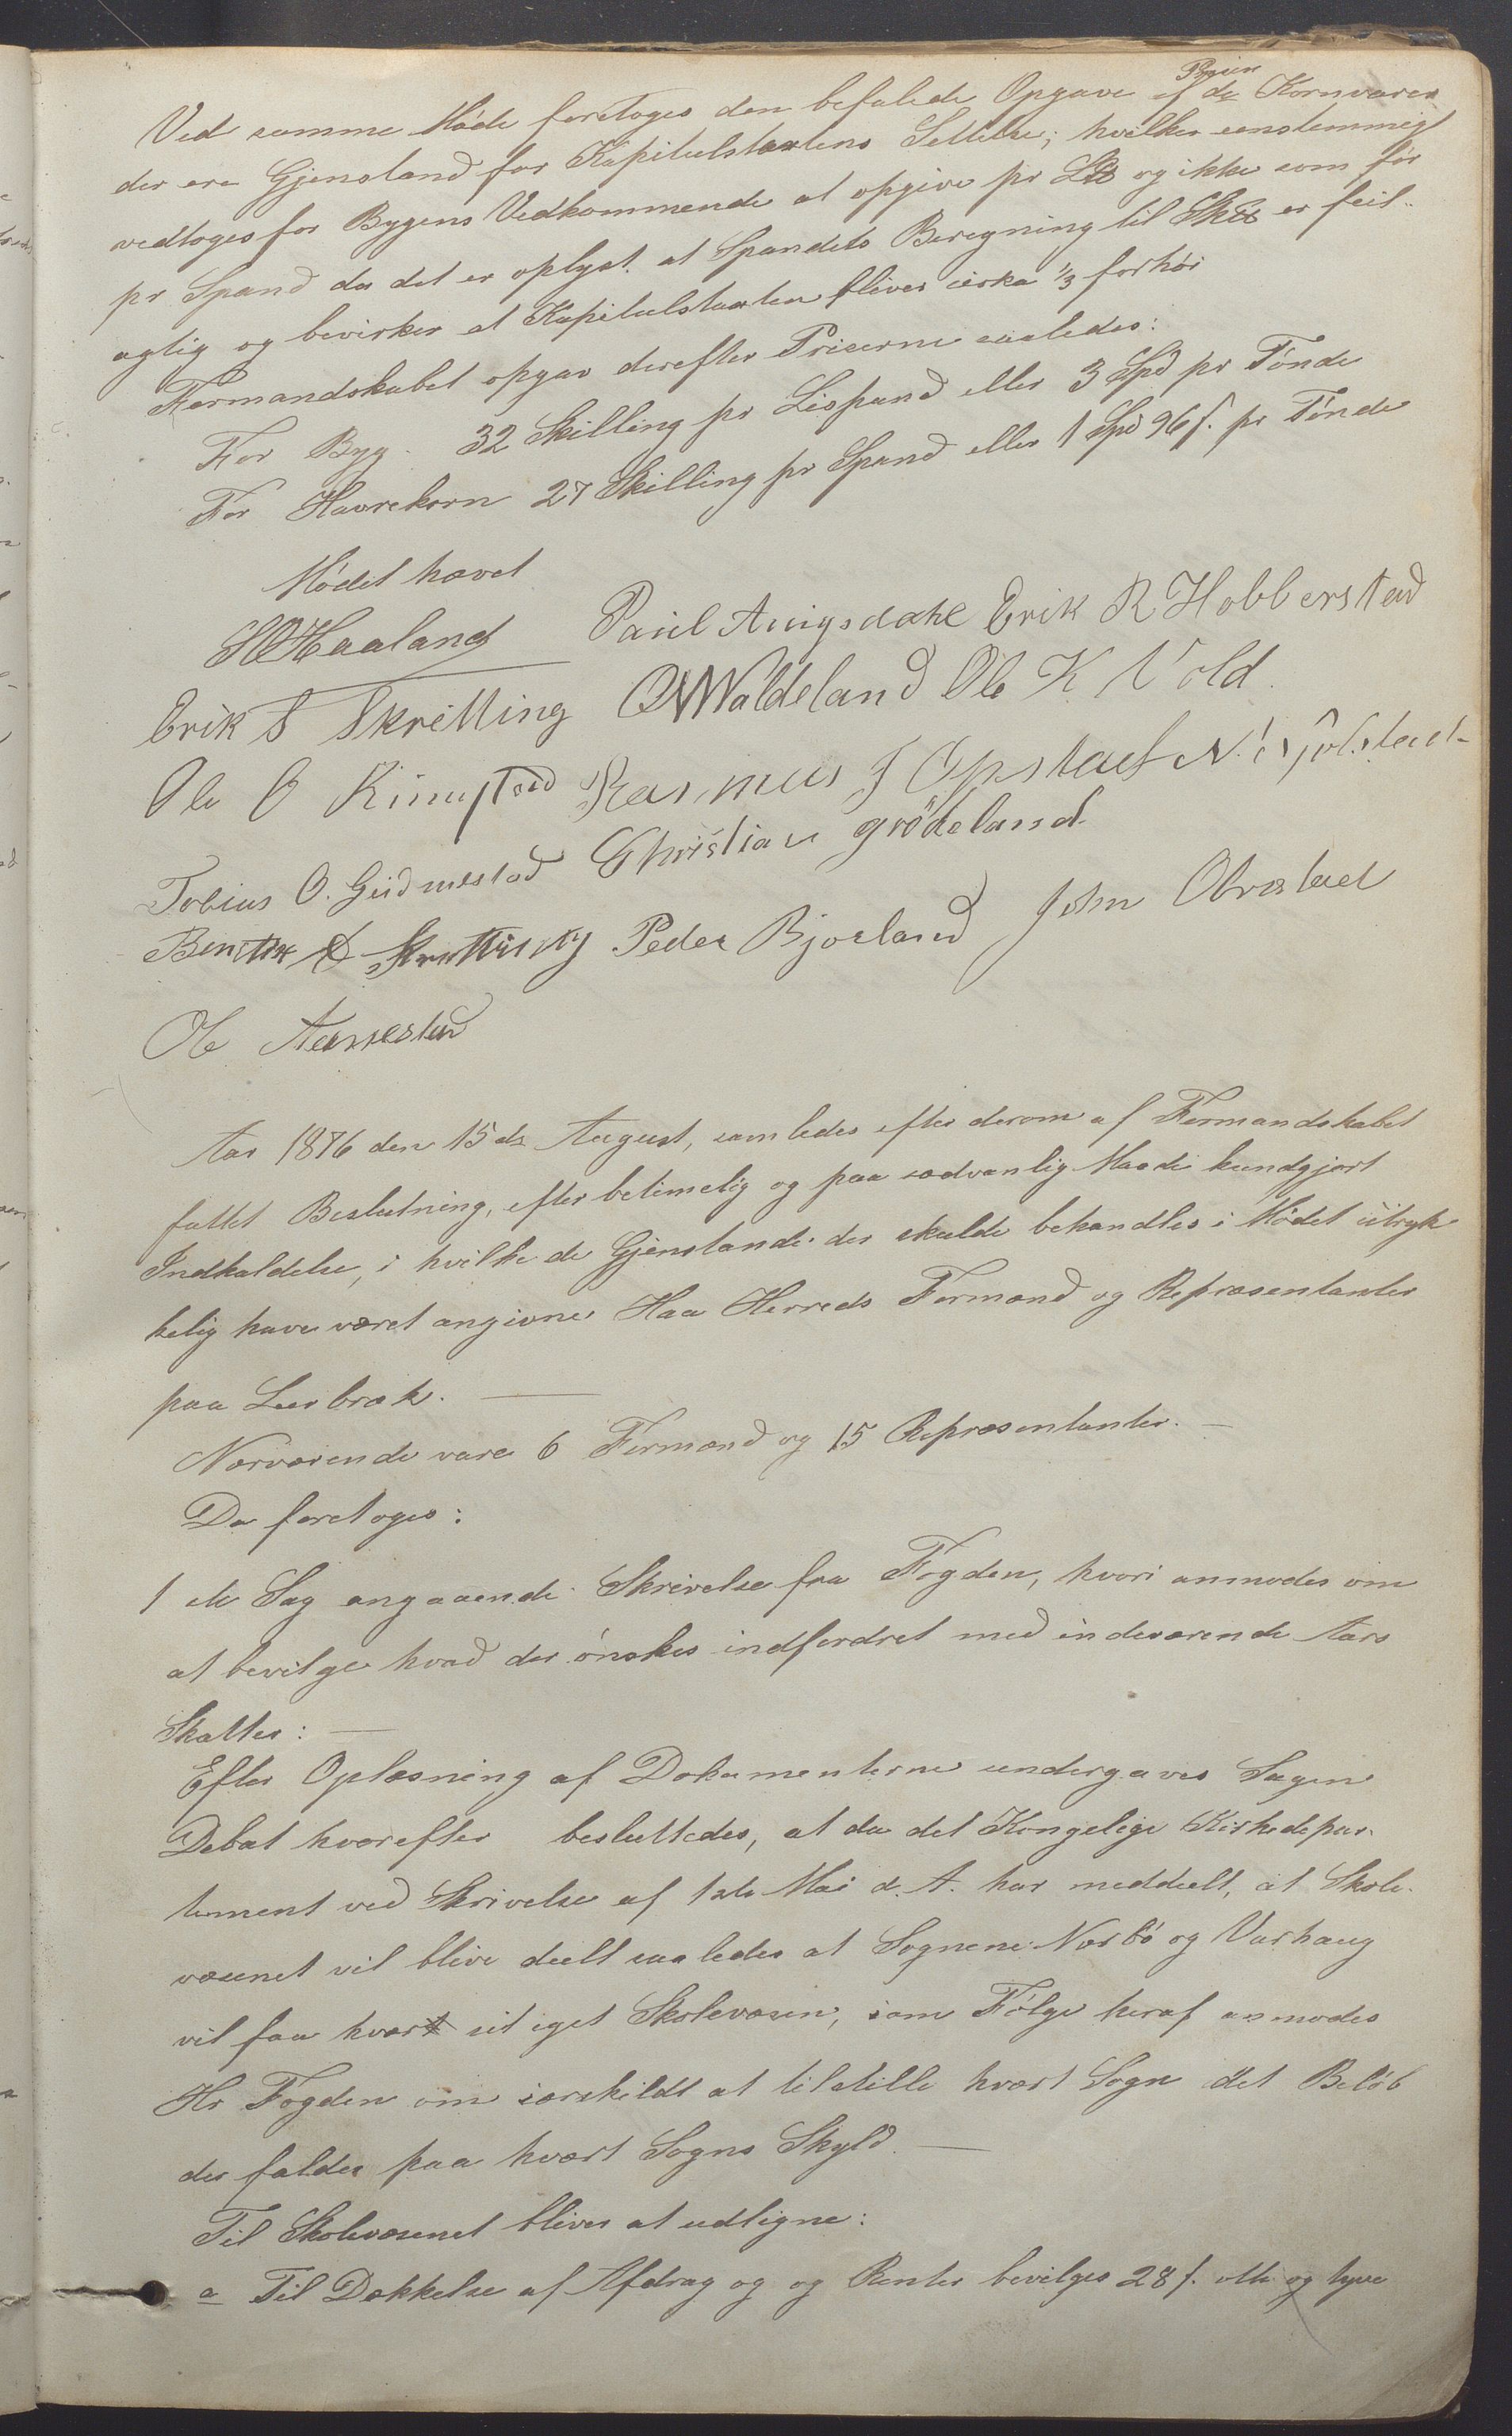 Ved samme Møde foretoges den befalede Opgave af Prisen de Kornvarer
der ere Gjenstand for Kapitulstaxtens Settelse; hvilken eenstemmigt
vedtoges for Byggens Vedkommende at opgive pr L℔ og ikke som før
pr Spand da det er oplyst at Spandets Beregning til Sk℔ er feil-
agtig og bevirker at Kapitulstaxten bliver cirka 1/3 forhøi
Formandskabet opgav derefter Priserne saaledes:
For Byg 32 Skilling pr Lispund eller 3 Spd pr Tønde
For Havrekorn 27 Skilling pr Spand eller 1 Spd 96 s. pr Tønde
Mødet hævet
HOHaaland Paul Auigsdahl Erik R Hobberstad
Erik S Skretting OWWaldeland Ole K Vold
Ole O Ringstad Rasmus J Opstad N. Njølstad
Tobias O. Gudmestad Christian Grödeland
Bentse Skretting Peder Bjorland John Obrestad
Ole Aarrestad
Aar 1876 den 15de August, samledes efter derom af Formandskabet
fattet Beslutning, efter betimelig og paa sædvanlig Maade kundgjort
Indkaldelse, i hvilke de Gjenstande der skulde behandles i Mødet üdtryk
kelig have været angivne Haa Herreds Formænd og Repræsentanter
paa Leerbræk. —
Nærværende vare 6 Formænd og 15 Repræsentanter. —
Da foretoges:
1 ste Sag angaaende Skrivelse fra Fogden, hvori anmodes om
at bevilge hvad der ønskes indfordret med indeværende Aars
Skatter: —
Efter Oplæsning af Dokumenterne undergaves Sagen
Debat hvorefter besluttedes, at da det Kongelige Kirkedepar-
tement ved Skrivelse af 1ste Mai d. A. har meddeelt, at Skole-
væsenet vil blive deelt saaledes at Sognene Nærbø og Varhaug
vil faa hvert sit eget Skolevæsen, som Følge heraf anmodes
Hr Fogden om særskildt at tilstille hvert Sogn det Beløb
der falder paa hvert Sogns Skyld. —
Til Skolevæsenet bliver at udligne:
a Til Dækkelse af Afdrag og og Renter bevilges 28 s. otte og tyve